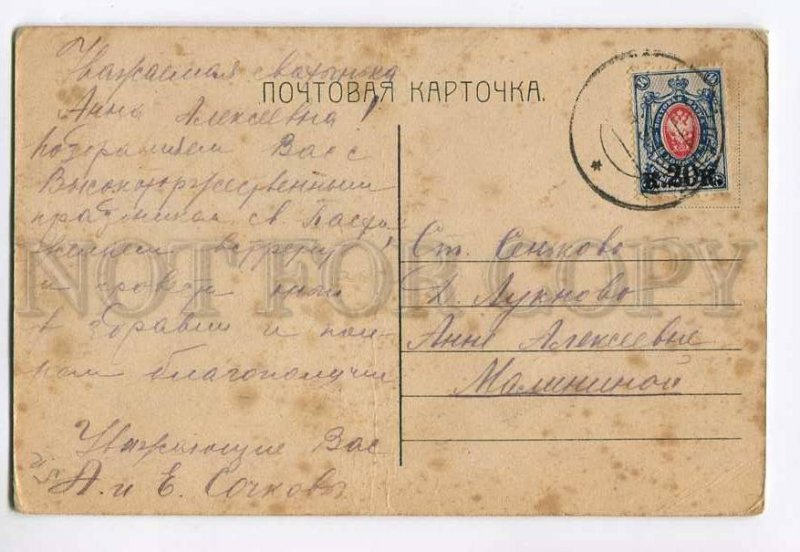 Уважаемая сватьюшка
ПОЧТОВАЯ КАРТОЧКА.
Анна Алексеевна!
Поздравляем Вас с
Высокоторжественным
праздником св. Пасхи
желаем встретить
и провести
в здравии и
благополучии
Уважающие Вас
А. и Е. Сочковы
20к.
Ст. Сеньково
Д. Лукново
Анне Алексеевне
Малининой
NOT FOR COPY